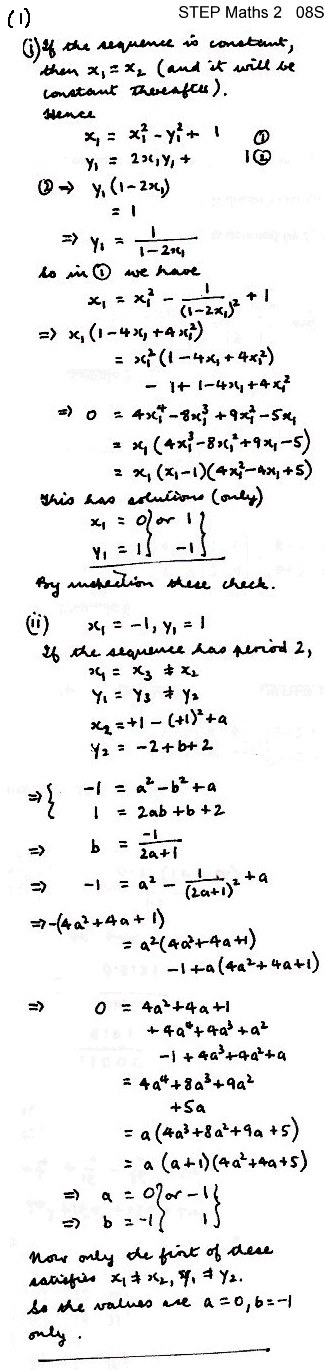 STEP Maths 2 08S
(1)
(i) If the sequence is constant,
then x₁ = x₂ (and it will be
constant thereafter).
Hence
x₁ = x₁² - y₁² + 1 ①
y₁ = 2x₁y₁ + 1 ②
② ⇒ y₁(1-2x₁)
= 1
⇒ y₁ = 1/(1-2x₁)
So in ① we have
x₁ = x₁² - 1/(1-2x₁)² + 1
⇒ x₁(1-4x₁+4x₁²)
= x₁²(1-4x₁+4x₁²)
- 1 + 1-4x₁+4x₁²
⇒ 0 = 4x₁⁴-8x₁³+9x₁²-5x₁
= x₁(4x₁³-8x₁²+9x₁-5)
= x₁(x₁-1)(4x₁²-4x₁+5)
This has solutions (only)
x₁ = 0} or 1}
y₁ = 1} -1}
By inspection these check.
(ii) x₁ = -1, y₁ = 1
If the sequence has period 2,
x₁ = x₃ ≠ x₂
y₁ = y₃ ≠ y₂
x₂ = +1 - (+1)² + a
y₂ = -2 + b + 2
⇒ { -1 = a² - b² + a
1 = 2ab + b + 2
⇒ b = -1/(2a+1)
⇒ -1 = a² - 1/(2a+1)² + a
⇒ -(4a²+4a+1)
= a²(4a²+4a+1)
-1+a(4a²+4a+1)
⇒ 0 = 4a²+4a+1
+4a⁴+4a³+a²
-1+4a³+4a²+a
= 4a⁴+8a³+9a²
+5a
= a(4a³+8a²+9a+5)
= a(a+1)(4a²+4a+5)
⇒ a = 0} or -1}
⇒ b = -1} 1}
Now only the first of these
satisfies x₁ ≠ x₂, y₁ ≠ y₂.
So the values are a=0, b=-1
only.